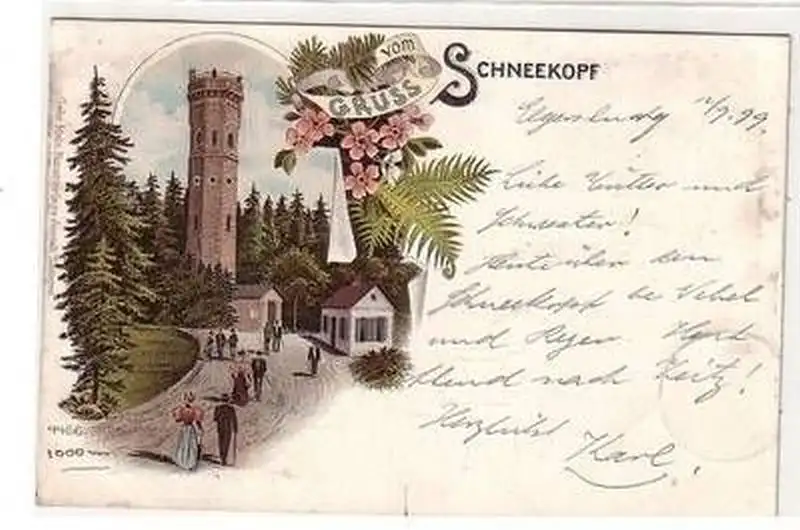 GRUSS vom
SCHNEEKOPF
Elgersburg 12/9. 99.
Liebe Mutter und
Schwester!
Heute über den
Schneekopf bei Nebel
und Regen.
nach Zeitz!
Herzlichst
Karl.
1000 m